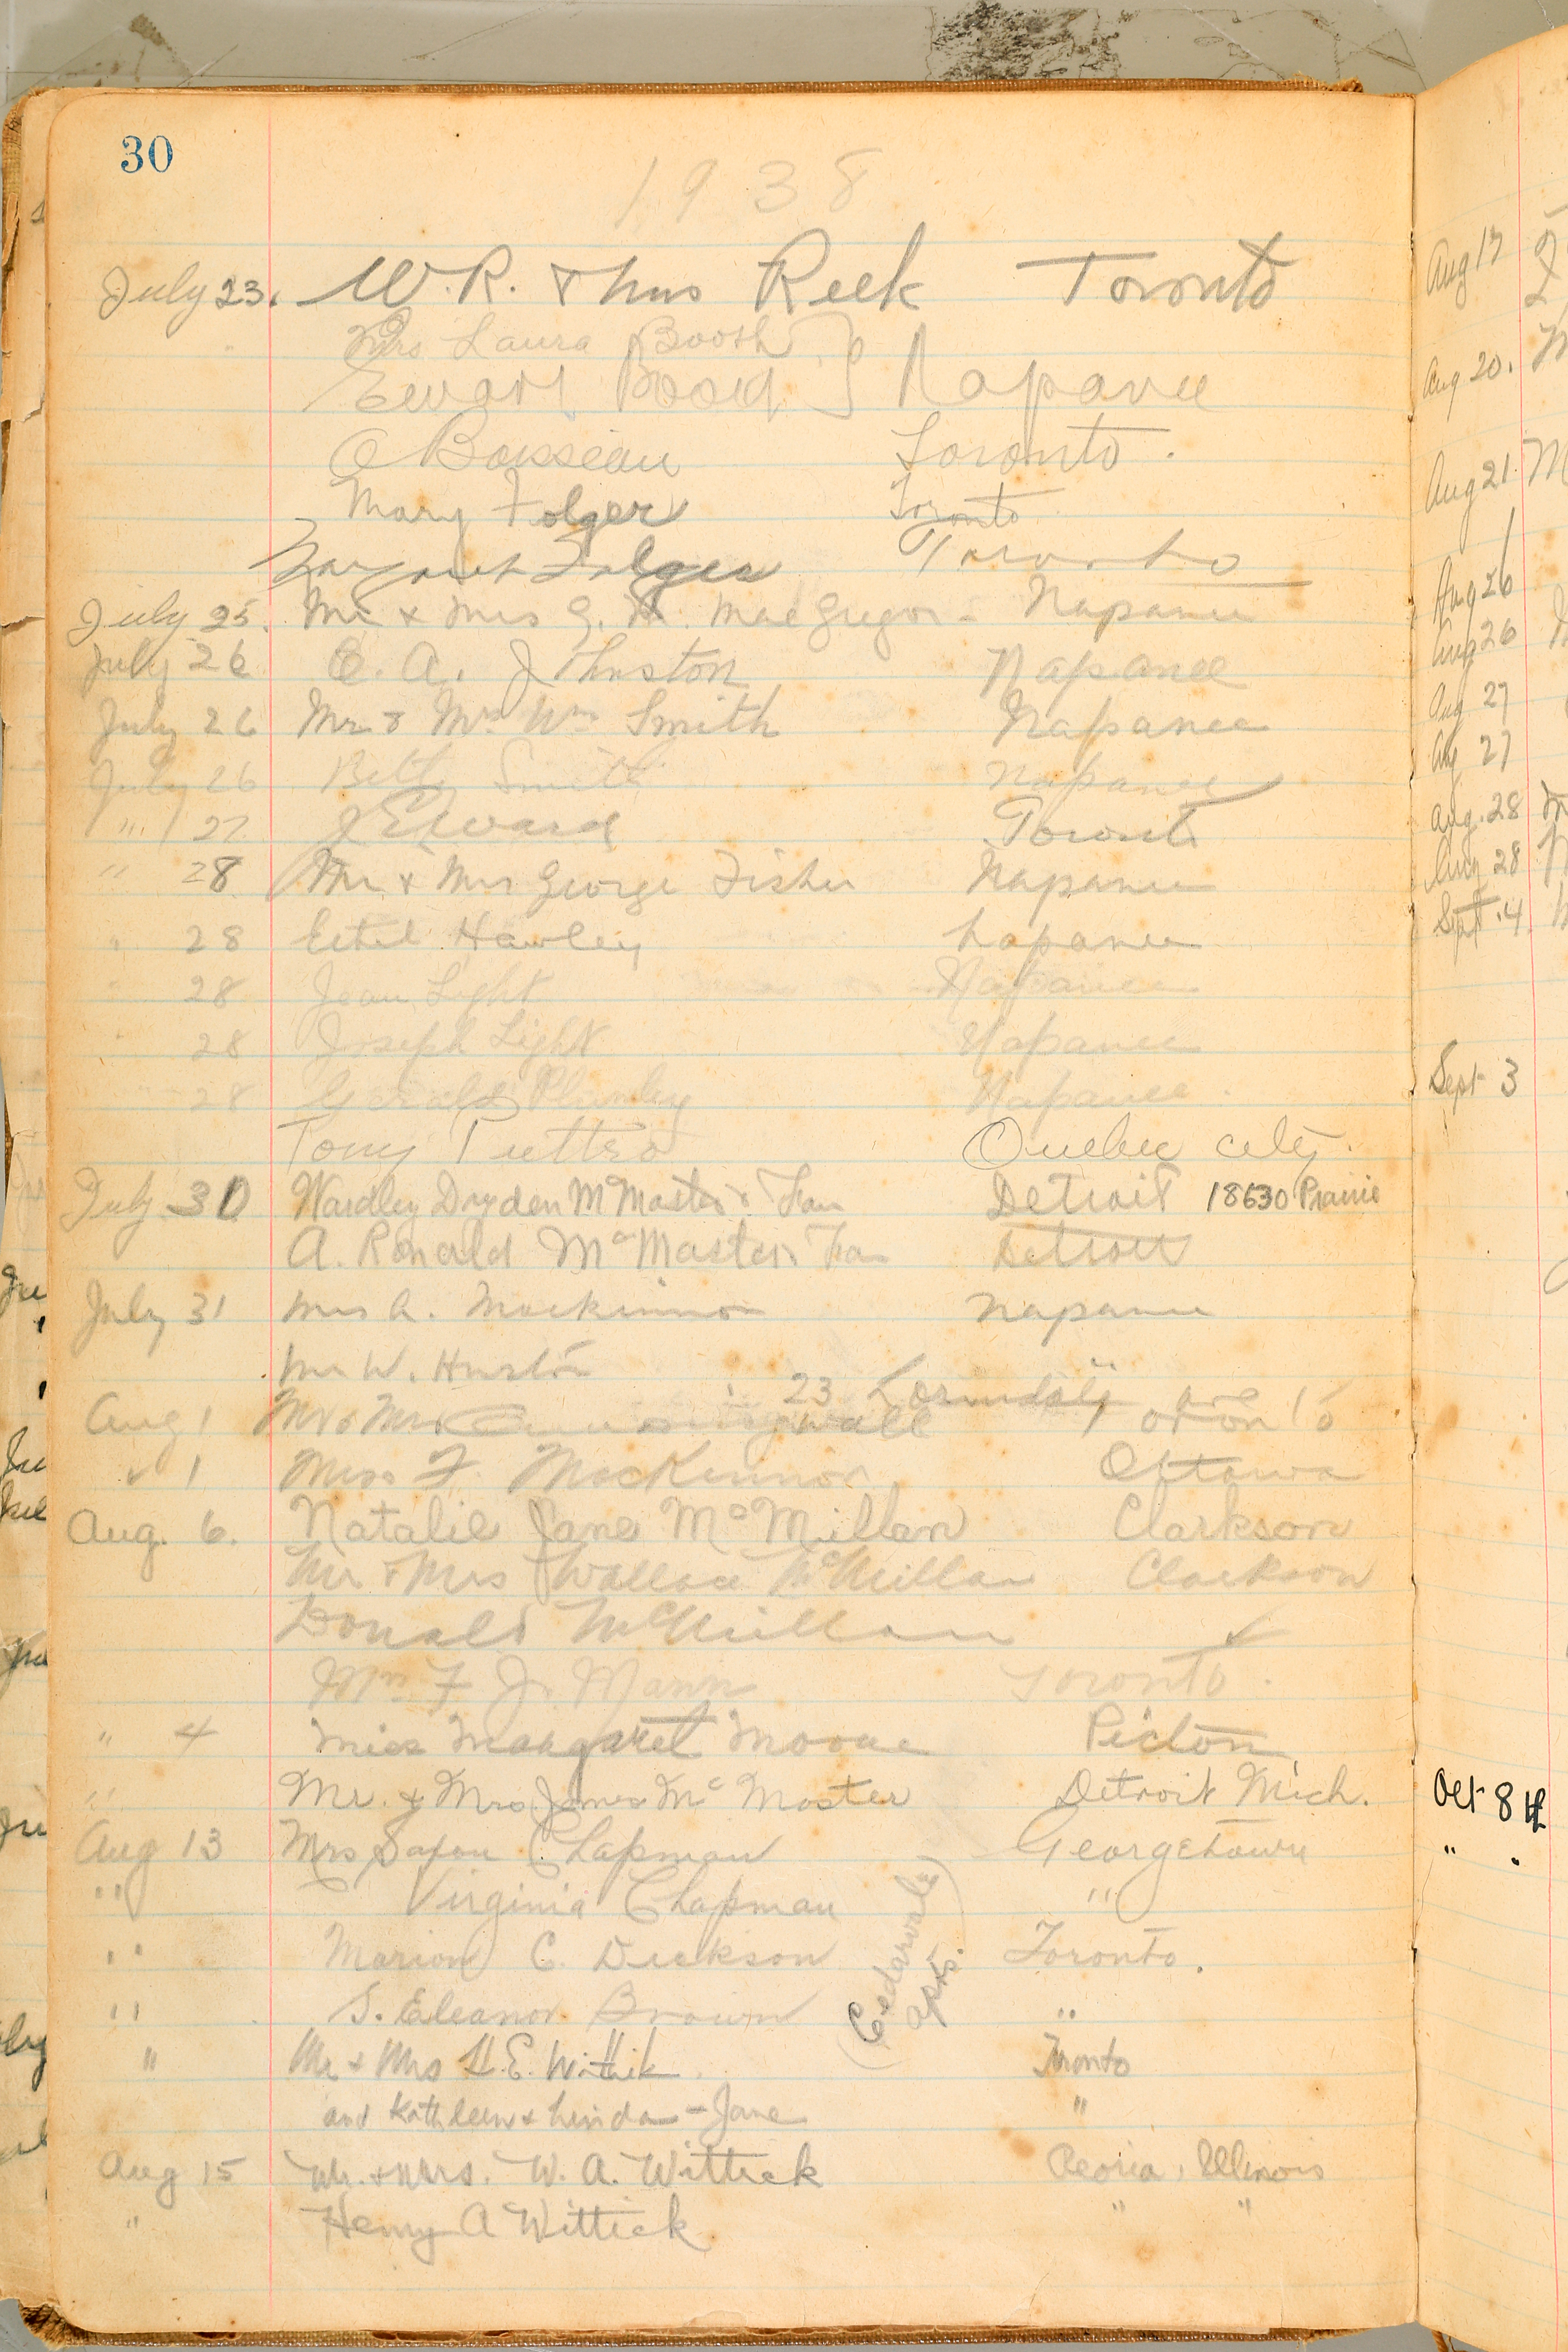 30
1938
July 23. W. R. & Mrs Reek Toronto
Mrs Laura Booth
Ewart Booth } Napanee
O Boisseau Toronto.
Mary Folger Toronto
Margaret Folger Toronto
July 25. Mr & Mrs G. H. MacGregor - Napanee
July 26 E. A. Johnston Napanee
July 26 Mr & Mrs Wm Smith Napanee
July 26 Betty Smith Napanee
" 27 J Edward Toronto
" 28 Mr & Mrs George Fisher Napanee
" 28 Ethel Hawley Napanee
" 28 Jean Light Napanee
" 28 Joseph Light Napanee
28 Gerald Plumley Napanee
Tony Quebec city.
July 30 Wardley Dryden McMaster & Fam Detroit 18630 Prairie
A. Ronald McMaster Detroit
July 31 Mrs A. Mackinnon Napanee
Mr W. Huston
23 ave
Aug 1 Mr & Mrs Toronto
" 1 Miss F. MacKinnon Ottawa
Aug. 6. Natalie Jane McMillan Clarkson
Mr & Mrs Wallace McMillan Clarkson
Donald McMillan "
Mrs F J. Mann Toronto.
" 4 Miss Margaret Moore Picton
" Mr. & Mrs. James McMaster Detroit Mich.
Aug 13 Mrs Saxon Chapman Georgetown
" Virginia Chapman "
" Marion C. Dickson Toronto.
(Cedarvale apts.)
" S. Eleanor Brown "
" Mr & Mrs H. E. Wittick Toronto
and Kathleen & Linda-Jane "
Aug 15 Mr. & Mrs. W. A. Wittick Peoria, Illinois
" Henry A Wittick " "
Aug 17
Aug 20.
Aug 21
Aug 26
Aug 26
Aug 27
Aug 27
Aug. 28
Aug 28
Sept. 4
Sept 3
Oct 8th
" "